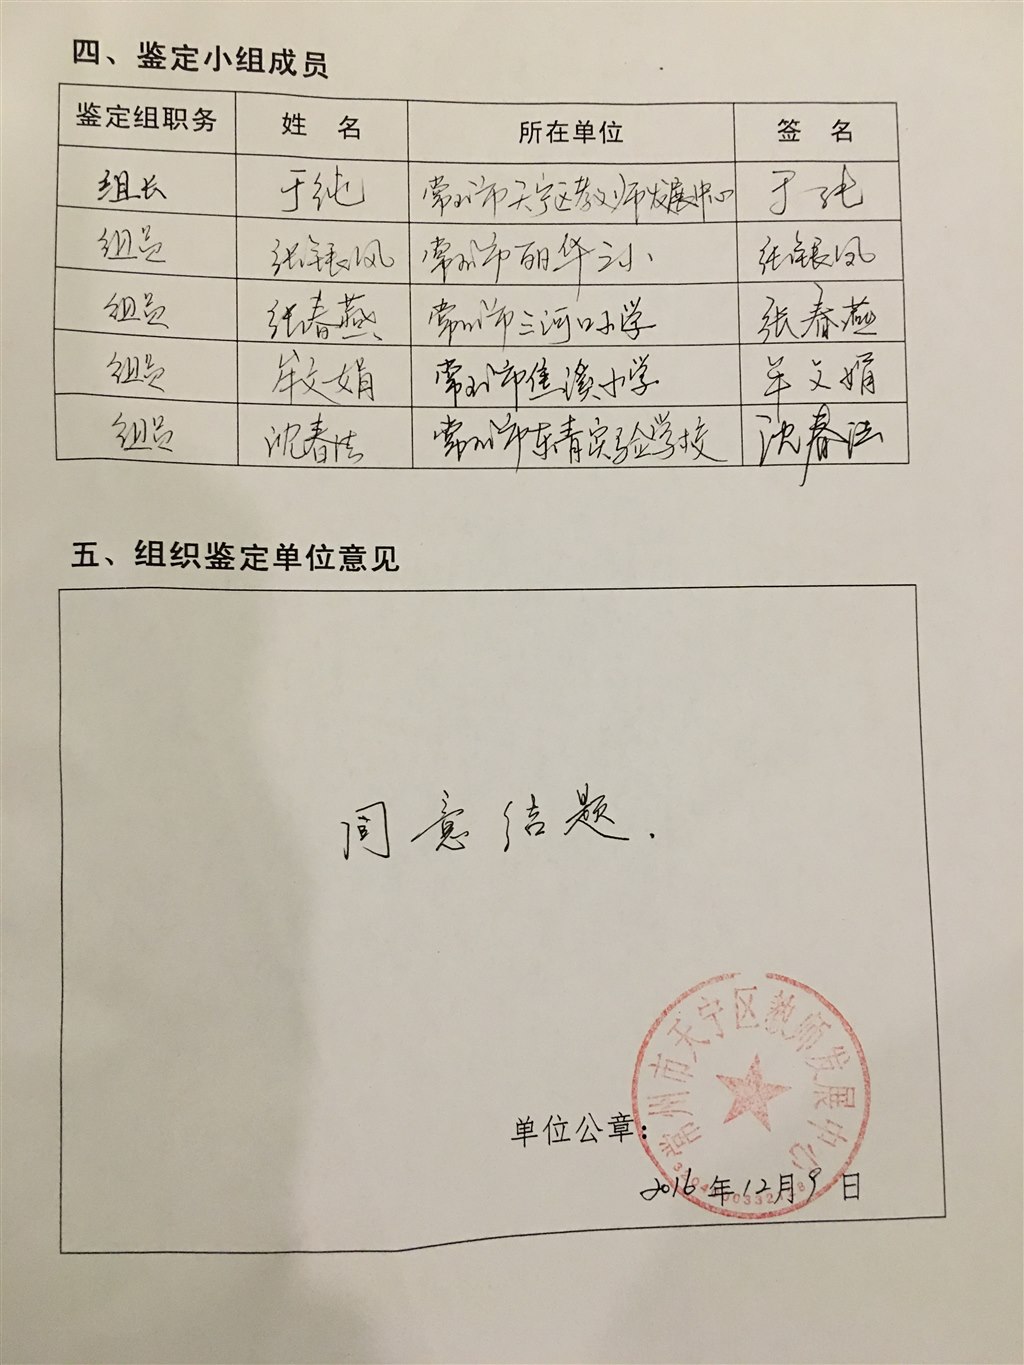 四、鉴定小组成员
鉴定组职务 姓 名 所在单位 签 名
组长 于纯 常州市天宁区教师发展中心 于纯
组员 张银凤 常州市丽华三小 张银凤
组员 张春燕 常州市三河口小学 张春燕
组员 牟文娟 常州市焦溪小学 牟文娟
组员 沈春法 常州市东青实验学校 沈春法
五、组织鉴定单位意见
同意结题.
常州市天宁区教师发展中心
单位公章:
2016年12月9日